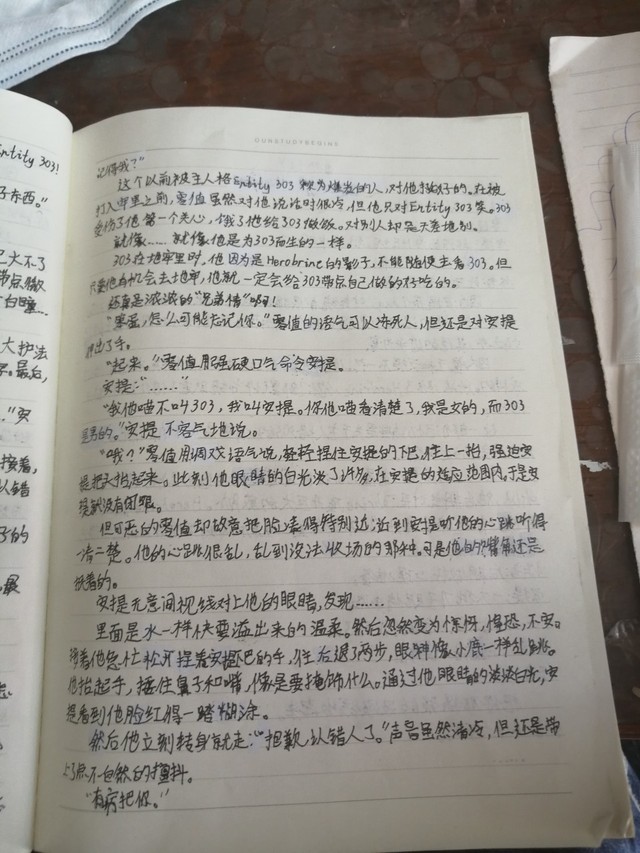 OURSTUDYBEGINS
记得我？”
这个以前被主人格Entity 303 称为爆炎的人，对他挺好的。在被
打入牢里之前，零值虽然对他说话时很冷，但他只对Entity 303笑。303
受伤了他第一个关心，饿了他给303做饭。对别人却是天差地别。
就像……就像他是为303而生的一样。
303在地牢里时，他因为是Herobrine的影子，不能随便去看303。但
只要他有机会去地牢，他就一定会给303带点自己做的好吃的。
还真是浓浓的“兄弟情”啊！
“零蛋，怎么可能忘记你。”零值的语气可以冻死人，但还是对安提
伸出了手。
“起来。”零值用强硬口气命令安提。
安提：“……”
“我他喵不叫303，我叫安提。你他喵看清楚了，我是女的，而303
是男的。”安提不客气地说。
“哦？”零值用调戏语气说，轻轻捏住安提的下巴，往上一抬，强迫安
提把头抬起来。此刻他眼睛的白光淡了许多，在安提的适应范围内，于是安
提就没有闭眼。
但可恶的零值却故意把脸凑得特别近，近到安提听他的心跳听得
一清二楚。他的心跳很乱，乱到没法收场的那种。可是他的嘴角还是
抿着的。
安提无意间视线对上他的眼睛，发现……
里面是水一样快要溢出来的温柔。然后忽然变为惊讶，惶恐，不安。
接着他急忙松开捏着安提下巴的手，往后退了两步，眼神像小鹿一样乱跳。
他抬起手，捂住鼻子和嘴，像是要掩饰什么。通过他眼睛的淡淡白光，安
提看到他脸红得一踏糊涂。
然后他立刻转身就走：“抱歉，认错人了。”声音虽然清冷，但还是带
上了点不自然的颤抖。
“有病把你。”
Entity 303！
好东西。”
己大不了
带点做
“白瞳…
大护法
字。最后，
”安
接着，
认错
子的
最